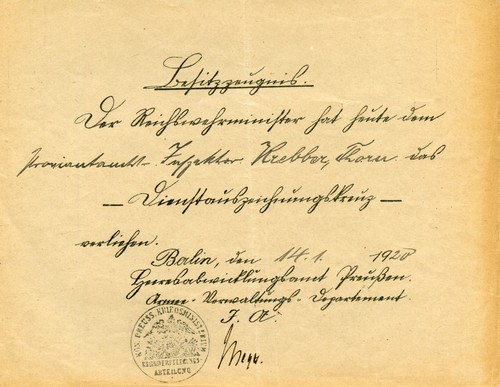 Besitzzeugnis.
Der Reichswehrminister hat heute dem
Proviantamts-Inspektor Krebber, Thorn das
— Dienstauszeichnungskreuz —
verliehen.
Berlin, den 14. 1. 1920
Heeresabwicklungsamt Preußen.
Armee-Verwaltungs-Departement.
J. A:
KÖN. PREUSS. KRIEGSMINISTERIUM
ABTEILUNG